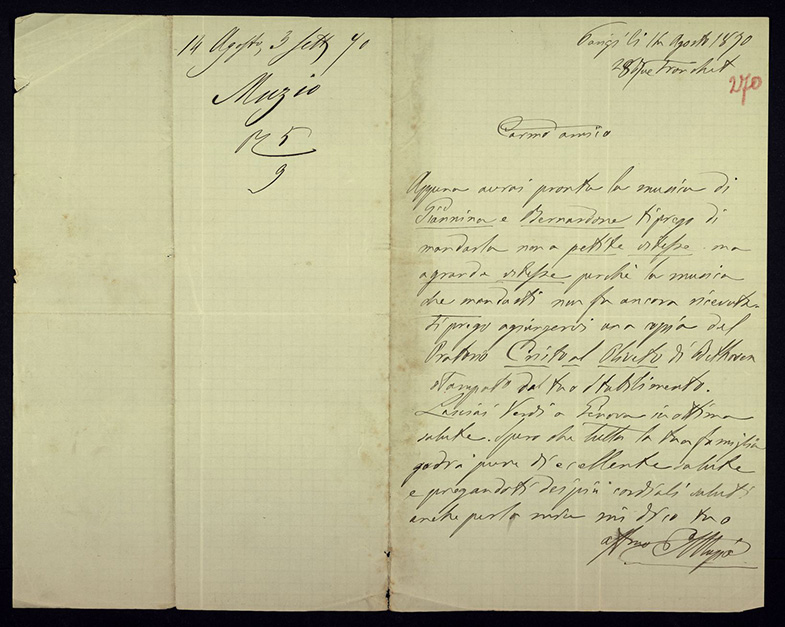 14 Agosto, 3 Sett 70
Muzio
R 5
9
Parigi li 14 Agosto 1870
28 Rue Tronchet
270
Carmo amico
Appena avrai pronta la musica di
Giannina e Bernardone ti prego di
mandarla non a petite vitesse ma
a grande vitesse perchè la musica
che mandasti non fu ancora ricevuta.
Ti prego aggiungervi una copia del
Oratorio Cristo al Oliveto di Bethoven
stampato dal tuo stabilimento.
Lasciai Verdi a Genova in ottima
salute. Spero che tutta la tua famiglia
godrà pure di eccellente salute
e pregandoti dei più cordiali saluti
anche per la mia mi dico tuo
affmo EMuzio